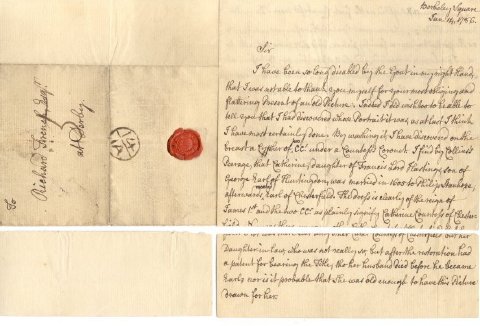 Berkeley Square
Jan. 14, 1786.
Sir
I have been so long disabled by the Gout in my right Hand,
that I was not able to thank you myself for your most obliging and
flattering Present of an old Picture. Indeed I did wish too to be able to
tell you that I had discovered whose Portrait it was, as at last I think
I have most certainly done. By washing it I have discovered on the
breast a Cypher of two CCs. under a Countess's Coronet. I find by Collins's
Peerage, that Catherine, daughter of Francis Lord Hastings, son of
George Earl of Huntingdon, was married in 1605 to Philip Stanhope,
afterwards Earl of Chesterfield. The Dress is clearly of the reign of
James 1st. and the two CCs. as plainly signify Catherine Countess of Chester-
Daughter in law, who was not really so, but after the restoration had
a patent for bearing the title, tho her husband died before he became
Earl; nor is it probable that she was old enough to have this Picture
drawn for her.
To
Richard French Esqr.
at Derby.